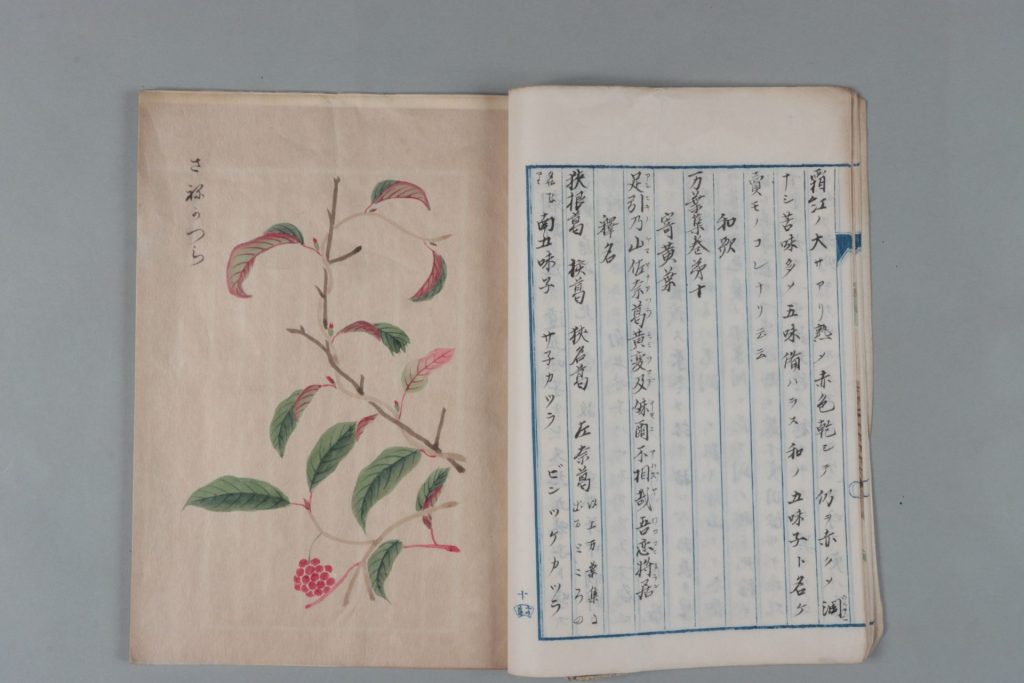 霜紅ノ大サアリ熟シテ赤色乾シテ仍ヲ赤クシ 潤
ナシ苦味多シ五味備ハラス和ノ五味子ト名ケ
賣モノコレナリ云云
和歌
万葉集巻第十
寄黄葉
足引乃山佐奈葛黄変及妹爾不相哉吾恋将居
釋名
狭根葛 狭葛 狭名葛 左奈葛 以上万葉集に
出る ところの
名也 南五味子 サネカツラ ビンツケカツラ
十
さねかつら